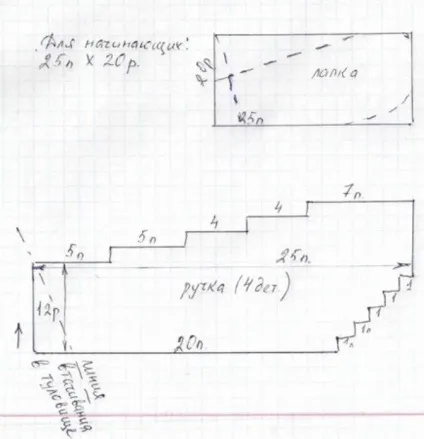 Для начинающих:
25п х 20р.
20р
лапка
25п
5п
5п
4
4
7п
25п.
12р.
ручка (4 дет.)
1
1
1
1п
1п
20п.
линия
втачивания
в туловище